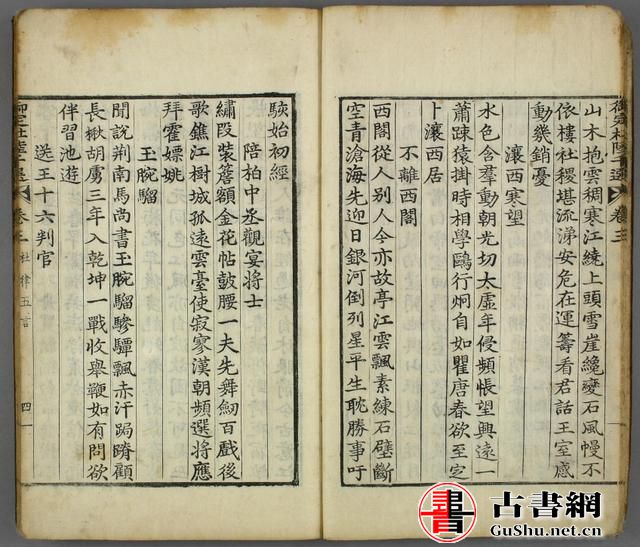 卷三
山木抱雲稠寒江繞上頭雪崖纔變石風幔不
依樓社稷堪流涕安危在運籌看君話王室感
動幾銷憂
瀼西寒望
水色含羣動朝光切太虛年侵頻悵望興遠一
蕭踈猿掛時相學鷗行炯自如瞿唐春欲至定
卜瀼西居
不離西閣
西閣從人别人今亦故亭江雲飄素練石壁斷
空青滄海先迎日銀河倒列星平生耽勝事吁
駭始初經
陪柏中丞觀宴將士
繡段裝簷額金花帖皷腰一夫先舞劒百戲後
歌鐎江樹城孤遠雲臺使寂寥漢朝頻選將應
拜霍嫖姚
玉腕騮
聞說荆南馬尚書玉腕騮驂驔飄赤汗跼蹐顧
長楸胡虜三年入乾坤一戰收舉鞭如有問欲
伴習池遊
送王十六判官
卷三 杜律五言 四
書 古書網
GuShu.net.cn